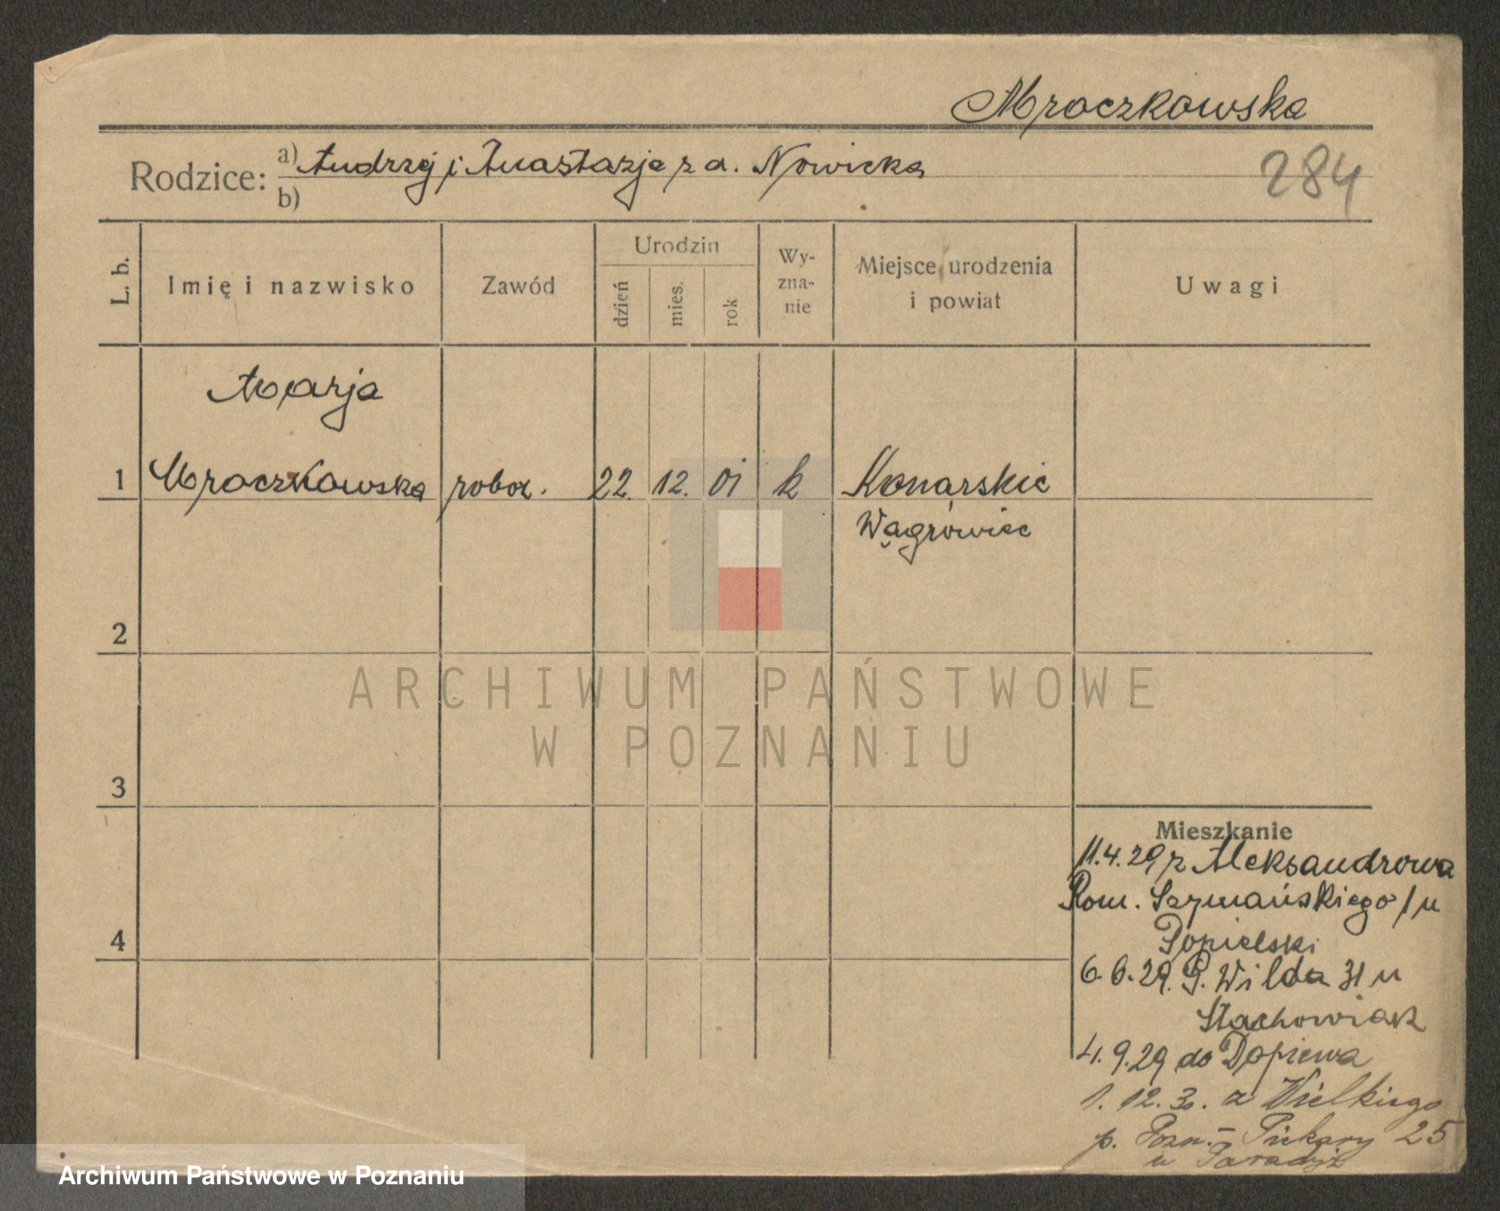 Mroczkowska
Rodzice: a) Andrzej i Anastazja z d. Nowicka
b)
284
L. b.
Imię i nazwisko
Zawód
Urodzin
dzień
mies.
rok
Wy-
zna-
nie
Miejsce urodzenia
i powiat
Uwagi
Marja
1 Mroczkowska robot. 22. 12. 01 k Konarskie
Wągrówiec
2
3
4
ARCHIWUM PAŃSTWOWE
W POZNANIU
Mieszkanie
11.4.29 z Aleksandrowa
Rom. Szymańskiego 1 u
Popielski
6.6.29. G. Wilda 31 u
Stachowiak
4.9.29 do Dopiewa
1.12.30. z Wielkiego
p. Pozn. - Piekary 25
u Paradyż
Archiwum Państwowe w Poznaniu